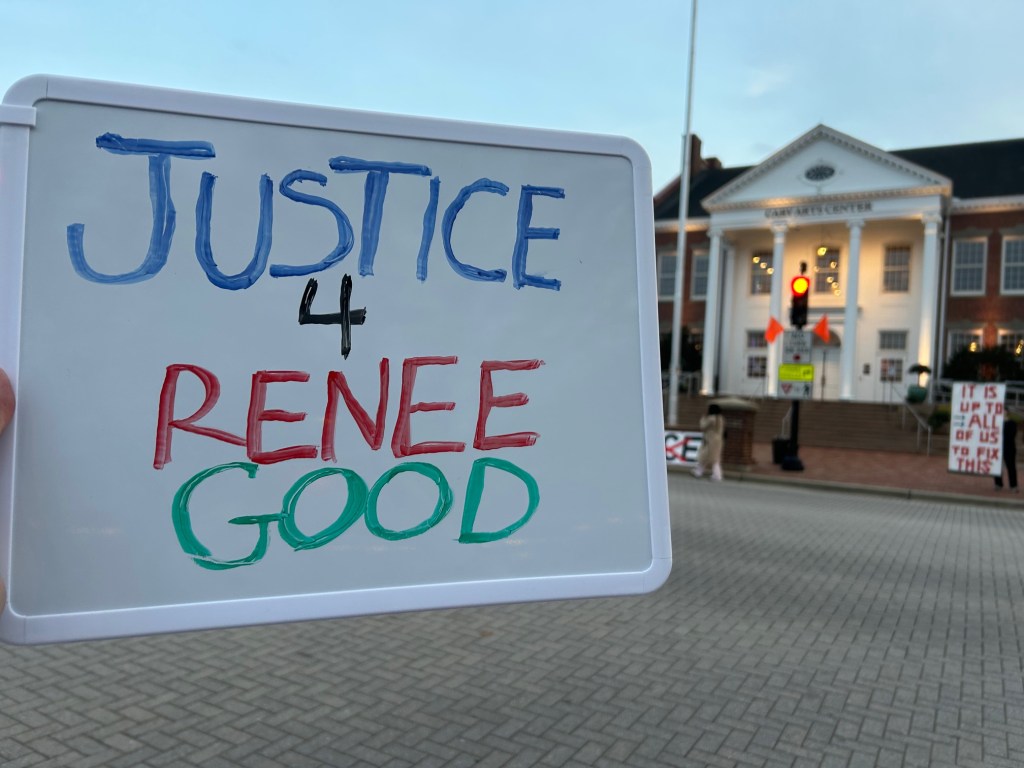 JUSTICE
4
RENEE
GOOD
CARY ARTS CENTER
IT IS
UP TO
ALL
OF US
TO FIX
THIS